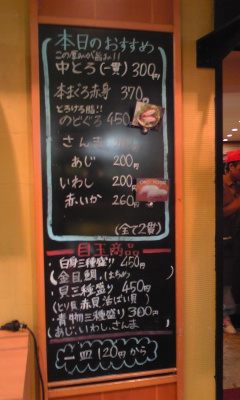 本日のおすすめ
この旨みが旨み!!
中とろ(一貫)300円
本まぐろ赤身 370円
とろける脂!!
のどぐろ 450
さんま
あじ 200円
いわし 200
赤いか 260円
(全て2貫)
目玉商品
・白身三種盛り 450円
(金目鯛,はちめ
・貝三種盛り 450円
(とり貝赤貝活ばい貝)
・青物三種盛り 300円
(あじ,いわし,さんま
一皿120円から